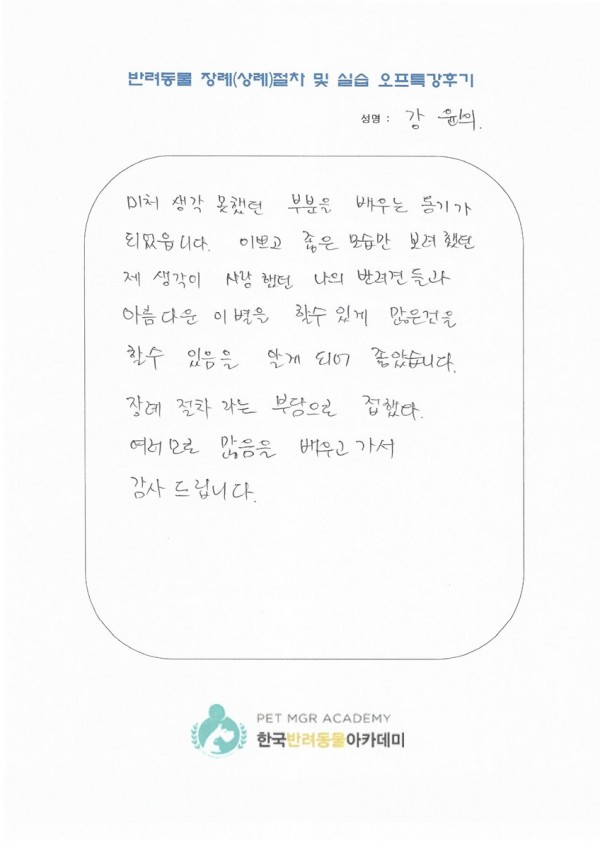 반려동물 장례(상례)절차 및 실습 오프특강후기
성명 : 강 윤의.
미처 생각 못했던 부분을 배우는 동기가
되었읍니다. 이쁘고 좋은 모습만 보려 했던
제 생각이 사랑 했던 나의 반려견들과
아름다운 이별을 할수 있게 많은것을
할수 있음을 알게 되어 좋았습니다.
장례 절차 라는 부담으로 접했다.
여러모로 많음을 배우고 가서
감사 드립니다.
PET MGR ACADEMY
한국반려동물아카데미